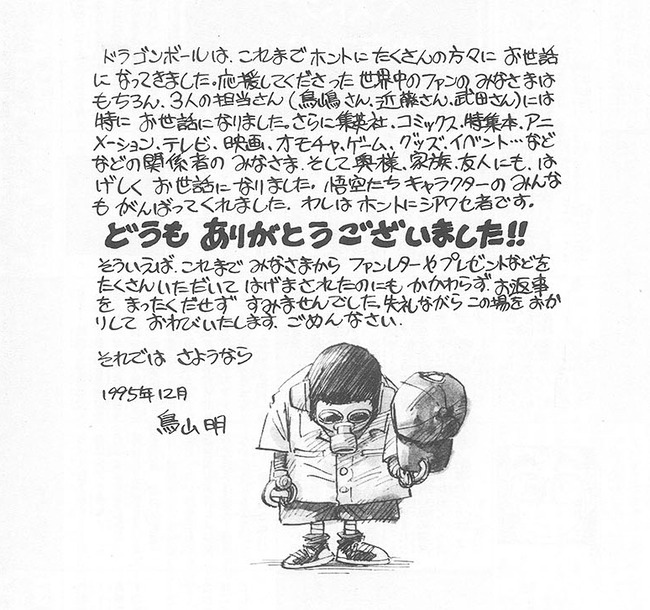 ドラゴンボールは、これまでホントにたくさんの方々にお世話
になってきました。応援してくださった世界中のファンのみなさまは
もちろん、3人の担当さん(鳥嶋さん、近藤さん、武田さん)には
特にお世話になりました。さらに集英社、コミックス、特集本、アニ
メーション、テレビ、映画、オモチャ、ゲーム、グッズ、イベント…など
などの関係者のみなさま、そして奥様、家族、友人にも、は
げしくお世話になりました。悟空たちキャラクターのみんな
もがんばってくれました。わしはホントにシアワセ者です。
どうもありがとうございました!!
そういえば、これまでみなさまからファンレターやプレゼントなどを
たくさんいただいてはげまされたのにもかかわらず、お返事
をまったくだせずすみませんでした。失礼ながらこの場をおか
りしておわびいたします。ごめんなさい。
それではさようなら
1995年12月
鳥山明